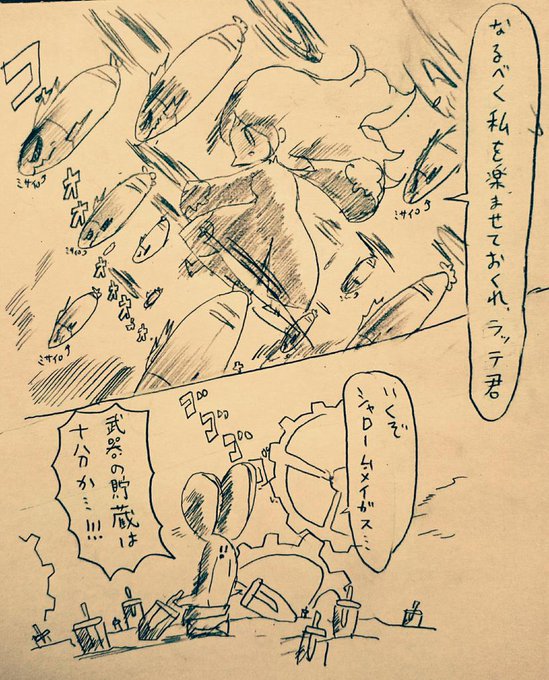 なるべく私を楽ませておくれ、ラッテ君
ゴ
オ
オ
オ
オ
オ
オ
ミサイロゥ
ミサイロゥ
ミサイロゥ
ミサイロゥ
いくぞ
シャロームメイガス…
ゴゴゴ
武器の貯蔵は
十分か…!!!